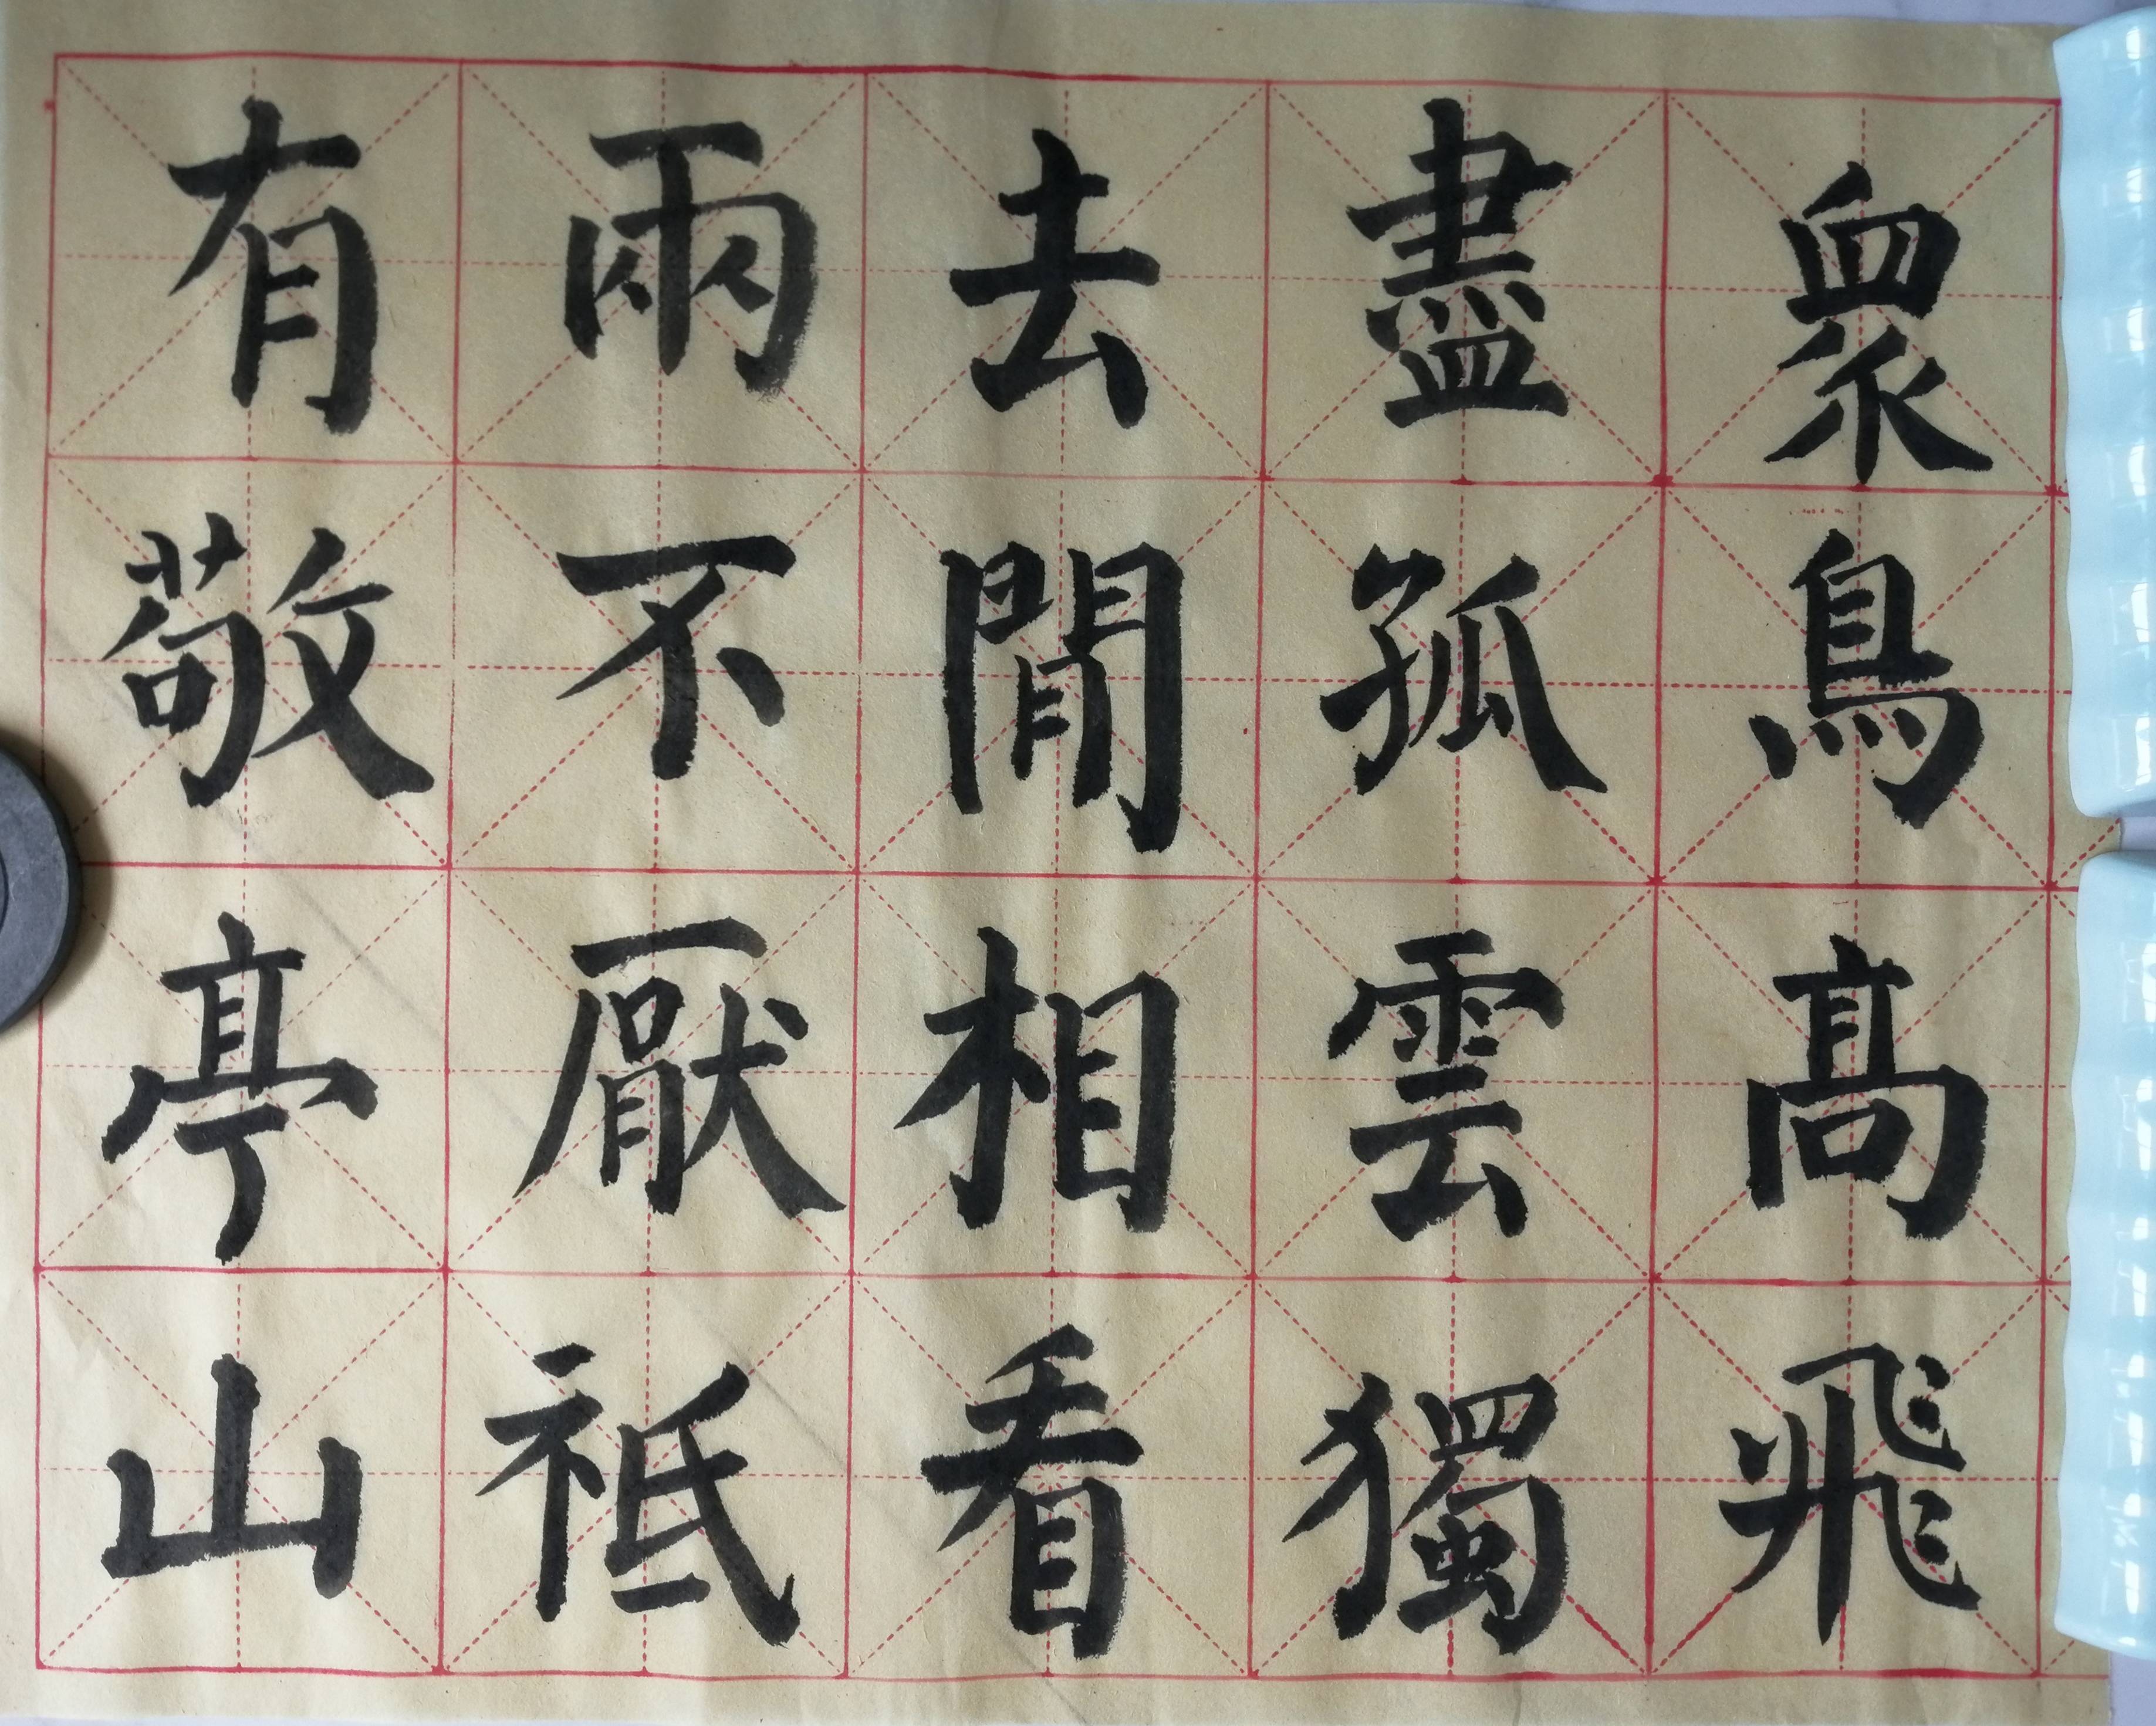 眾鳥高飛
盡孤雲獨
去閒相看
兩不厭祗
有敬亭山